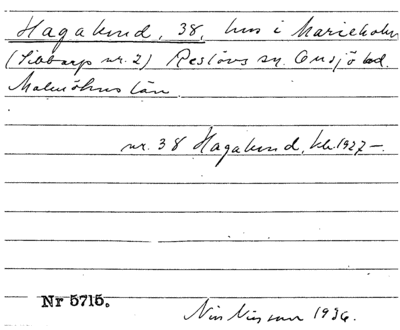 Hagalund, 38, hus i Marieholm
(Sibbarp nr. 2) Reslövs sn. Onsjö hd.
Malmöhus län.
nr. 38 Hagalund, kb. 1927–.
Nr 5715.
Nils Nilsson 1936.